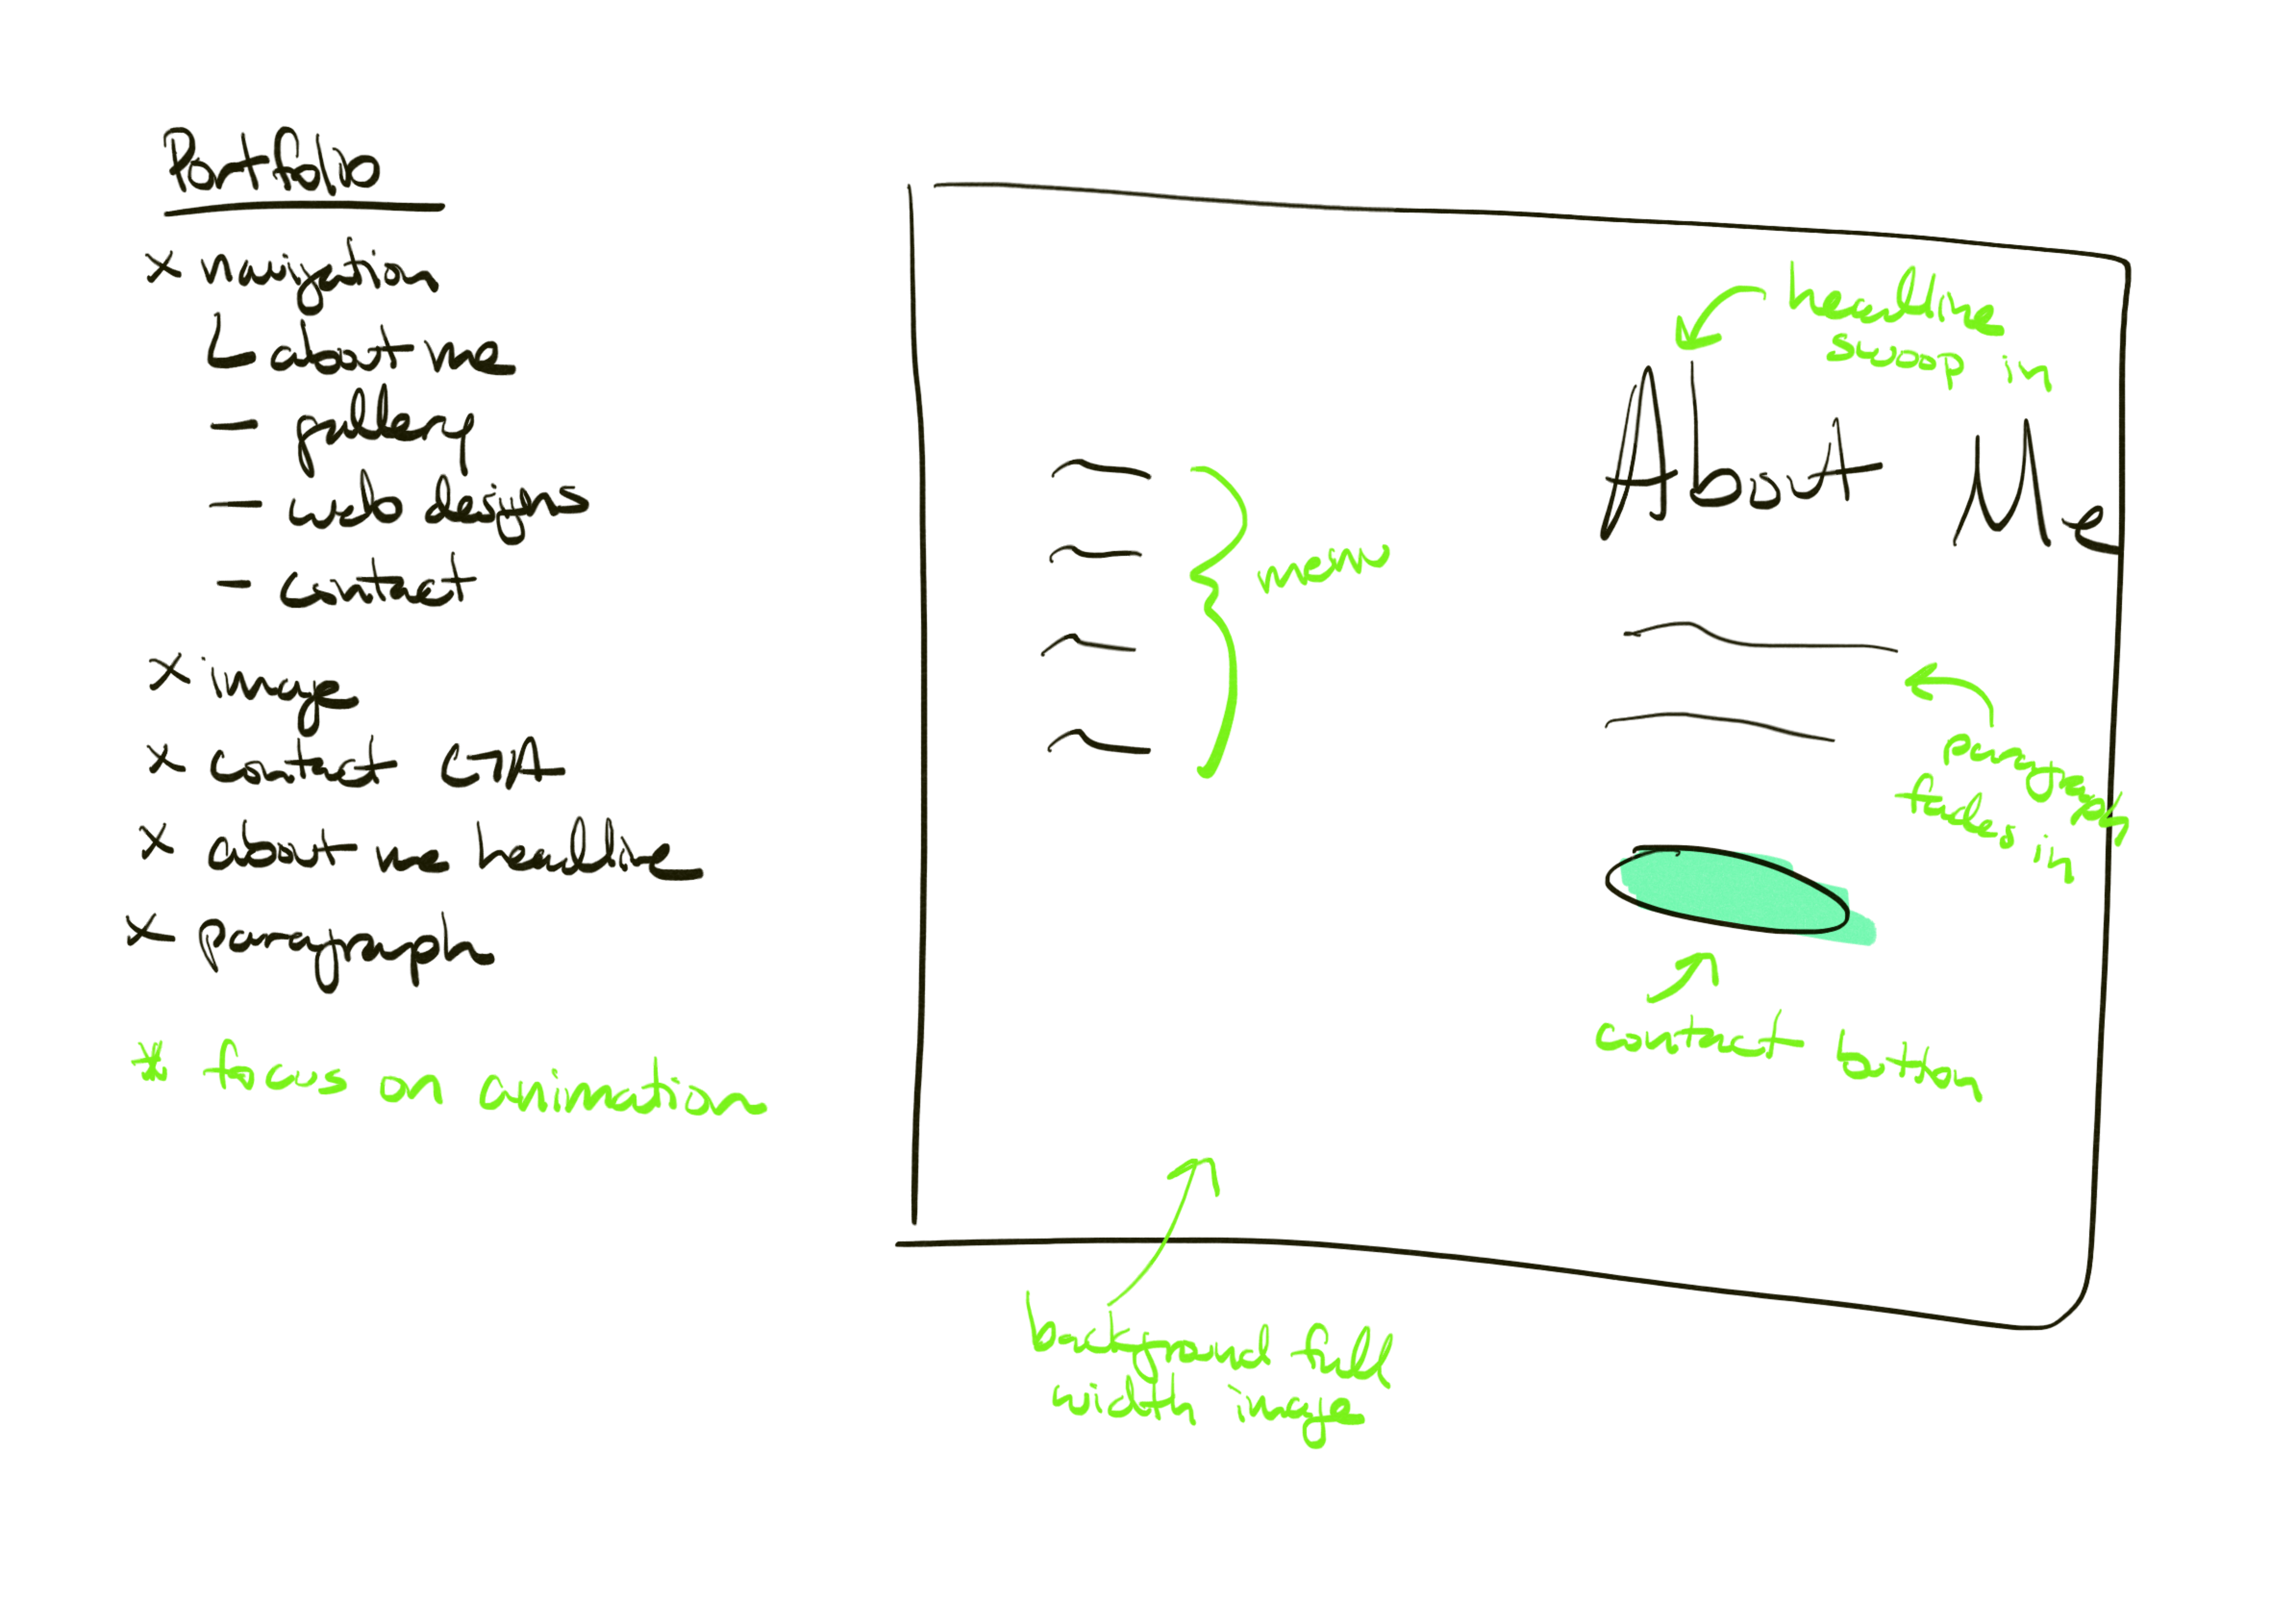 Portfolio
x navigation
about me
- gallery
- web designs
- contact
x image
x contact CTA
x about me headline
x paragraph
* focus on animation
headline
swoop in
About Me
menu
paragraph
fades in
contact button
background full
width image